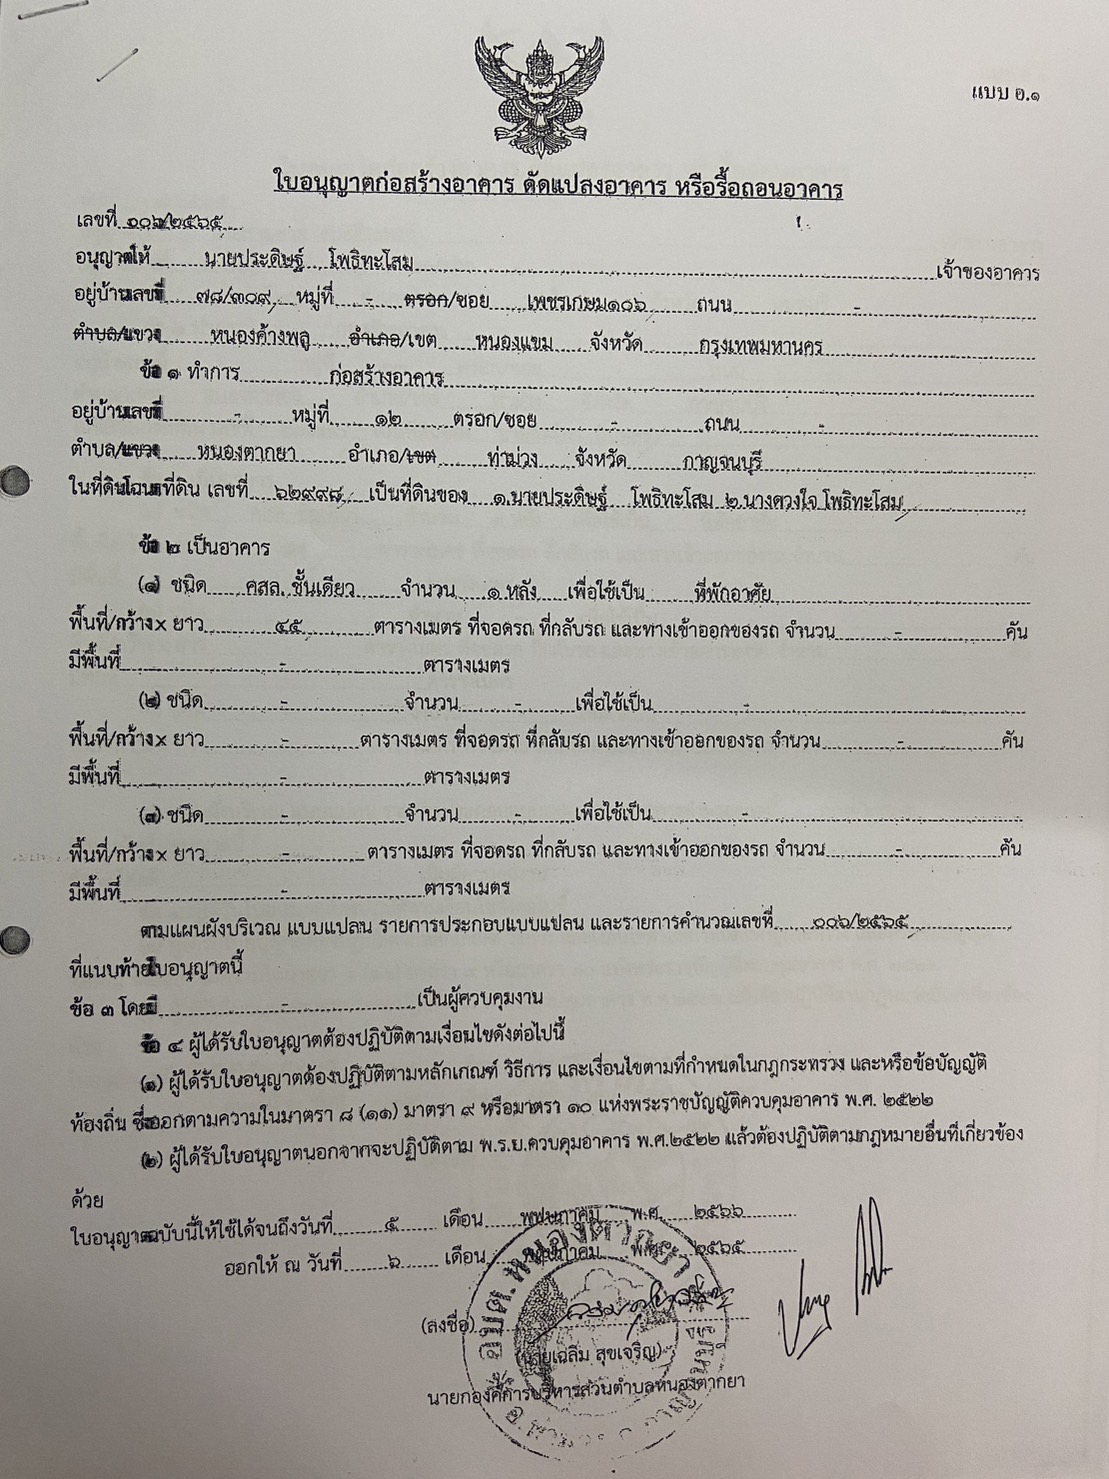 แบบ อ.๑
ใบอนุญาตก่อสร้างอาคาร ดัดแปลงอาคาร หรือรื้อถอนอาคาร
เลขที่ ๑๐๖/๒๕๖๕
อนุญาตให้ นายประดิษฐ์ โพธิทะโสม เจ้าของอาคาร
อยู่บ้านเลขที่ ๗๘/๓๐๙ หมู่ที่ - ตรอก/ซอย เพชรเกษม๑๐๖ ถนน -
ตำบล/แขวง หนองค้างพลู อำเภอ/เขต หนองแขม จังหวัด กรุงเทพมหานคร
ข้อ ๑ ทำการ ก่อสร้างอาคาร
อยู่บ้านเลขที่ - หมู่ที่ ๑๒ ตรอก/ซอย - ถนน -
ตำบล/แขวง หนองตากยา อำเภอ/เขต ท่าม่วง จังหวัด กาญจนบุรี
ในที่ดินโฉนดที่ดิน เลขที่ ๖๒๙๙๘ เป็นที่ดินของ ๑.นายประดิษฐ์ โพธิทะโสม ๒.นางดวงใจ โพธิทะโสม
ข้อ ๒ เป็นอาคาร
(๑) ชนิด คสล. ชั้นเดียว จำนวน ๑ หลัง เพื่อใช้เป็น ที่พักอาศัย
พื้นที่/กว้าง x ยาว ๔๕ ตารางเมตร ที่จอดรถ ที่กลับรถ และทางเข้าออกของรถ จำนวน - คัน
มีพื้นที่ - ตารางเมตร
(๒) ชนิด - จำนวน - เพื่อใช้เป็น -
พื้นที่/กว้าง x ยาว - ตารางเมตร ที่จอดรถ ที่กลับรถ และทางเข้าออกของรถ จำนวน - คัน
มีพื้นที่ - ตารางเมตร
(๓) ชนิด - จำนวน - เพื่อใช้เป็น -
พื้นที่/กว้าง x ยาว - ตารางเมตร ที่จอดรถ ที่กลับรถ และทางเข้าออกของรถ จำนวน - คัน
มีพื้นที่ - ตารางเมตร
ตามแผนผังบริเวณ แบบแปลน รายการประกอบแบบแปลน และรายการคำนวณเลขที่ ๑๐๖/๒๕๖๕
ที่แนบท้ายใบอนุญาตนี้
ข้อ ๓ โดยมี - เป็นผู้ควบคุมงาน
ข้อ ๔ ผู้ได้รับใบอนุญาตต้องปฏิบัติตามเงื่อนไขดังต่อไปนี้
(๑) ผู้ได้รับใบอนุญาตต้องปฏิบัติตามหลักเกณฑ์ วิธีการ และเงื่อนไขตามที่กำหนดในกฎกระทรวง และหรือข้อบัญญัติ
ท้องถิ่น ซึ่งออกตามความในมาตรา ๘ (๑๑) มาตรา ๙ หรือมาตรา ๑๐ แห่งพระราชบัญญัติควบคุมอาคาร พ.ศ. ๒๕๒๒
(๒) ผู้ได้รับใบอนุญาตนอกจากจะปฏิบัติตาม พ.ร.บ.ควบคุมอาคาร พ.ศ.๒๕๒๒ แล้วต้องปฏิบัติตามกฎหมายอื่นที่เกี่ยวข้อง
ด้วย
ใบอนุญาตฉบับนี้ให้ใช้ได้จนถึงวันที่ ๕ เดือน พฤษภาคม พ.ศ. ๒๕๖๖
ออกให้ ณ วันที่ ๖ เดือน พฤษภาคม พ.ศ. ๒๕๖๕
(ลงชื่อ)
(นายเฉลิม สุขเจริญ)
นายกองค์การบริหารส่วนตำบลหนองตากยา
อบต.หนองตากยา
อ.ท่าม่วง จ.กาญจนบุรี